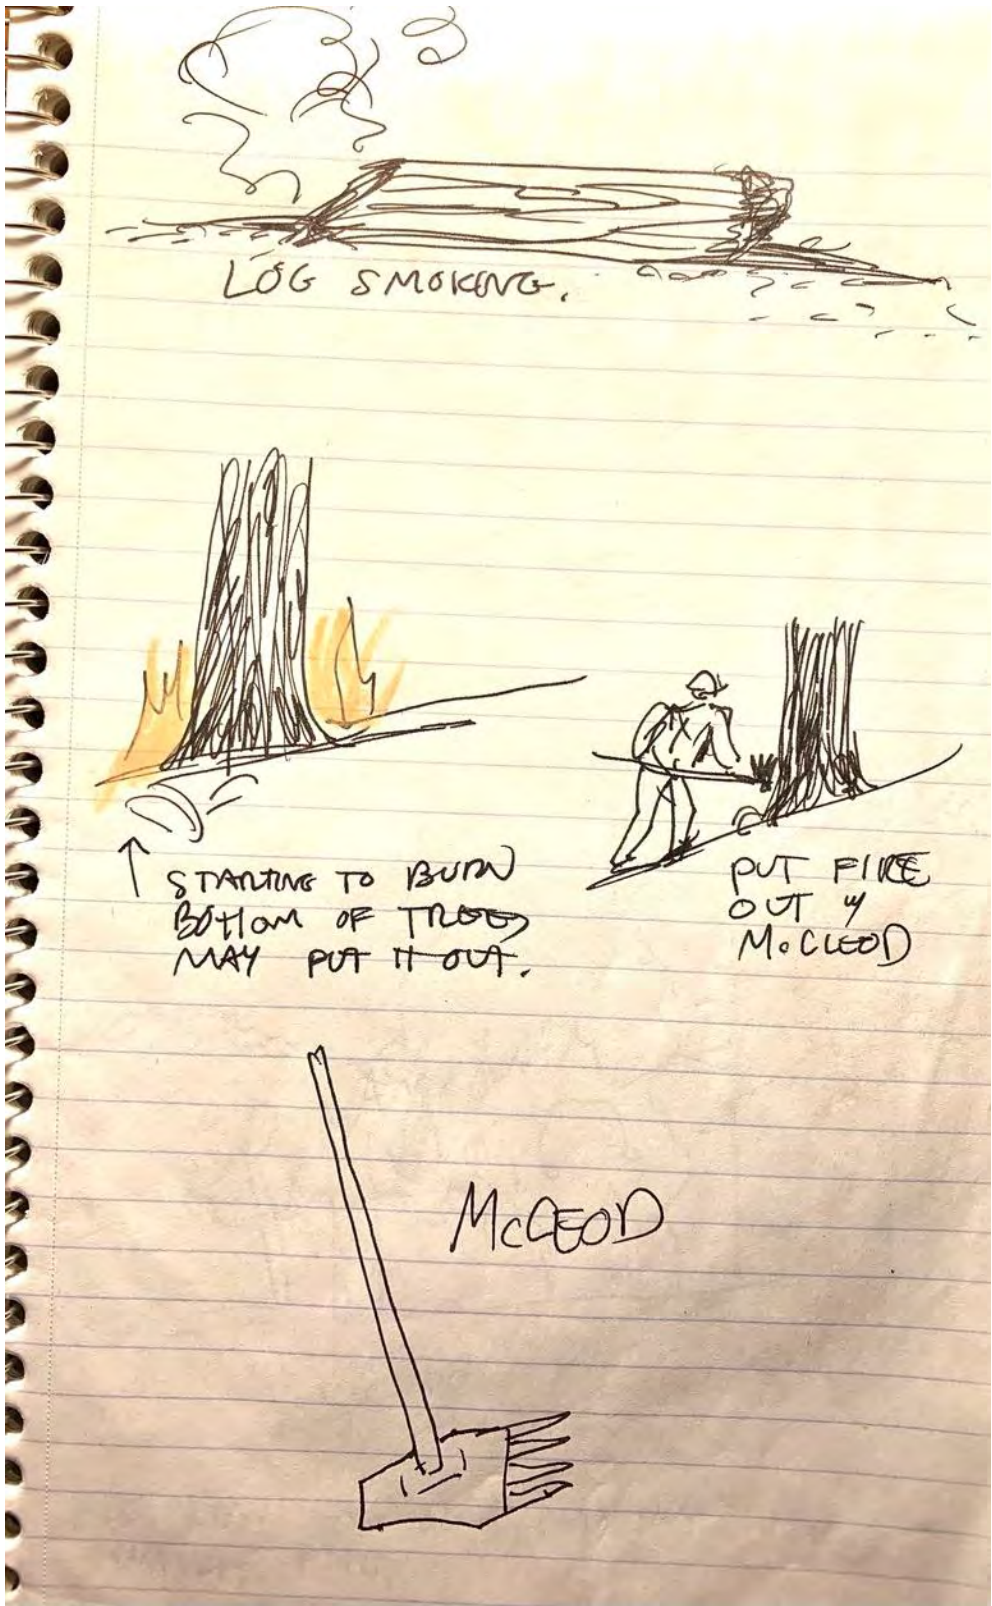 LOG SMOKING.
STARTING TO BURN
BOTTOM OF TREE,
MAY PUT IT OUT.
PUT FIRE
OUT w/
McCLEOD
McCLEOD